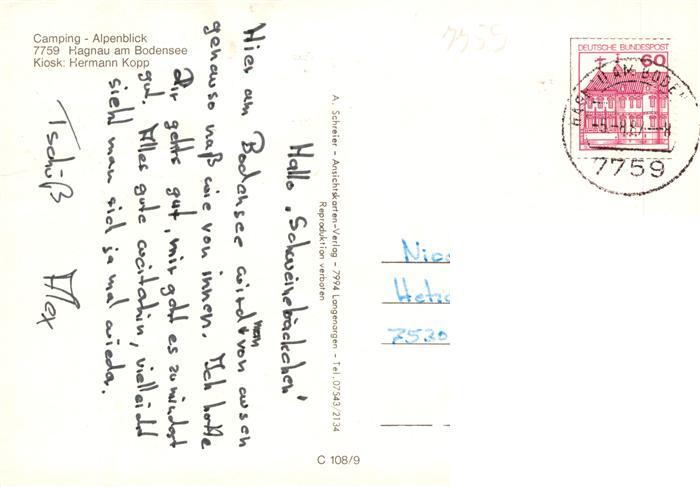 Camping - Alpenblick
7759 Hagnau am Bodensee
Kiosk: Hermann Kopp
Hallo, Schweinebäckchen'
Hier am Bodensee wird man von aussen
genauso naß wie von innen. Ich hoffe
Dir gehts gut, mir geht es zumindest
gut. Alles gute weiterhin, vielleicht
sieht man sich ja mal wieder.
Tschüß Alex
A. Schreier - Ansichtskarten-Verlag - 7994 Langenargen - Tel. 07543/2134
Reproduktion verboten
C 108/9
7759
DEUTSCHE BUNDESPOST
60
7759
7530